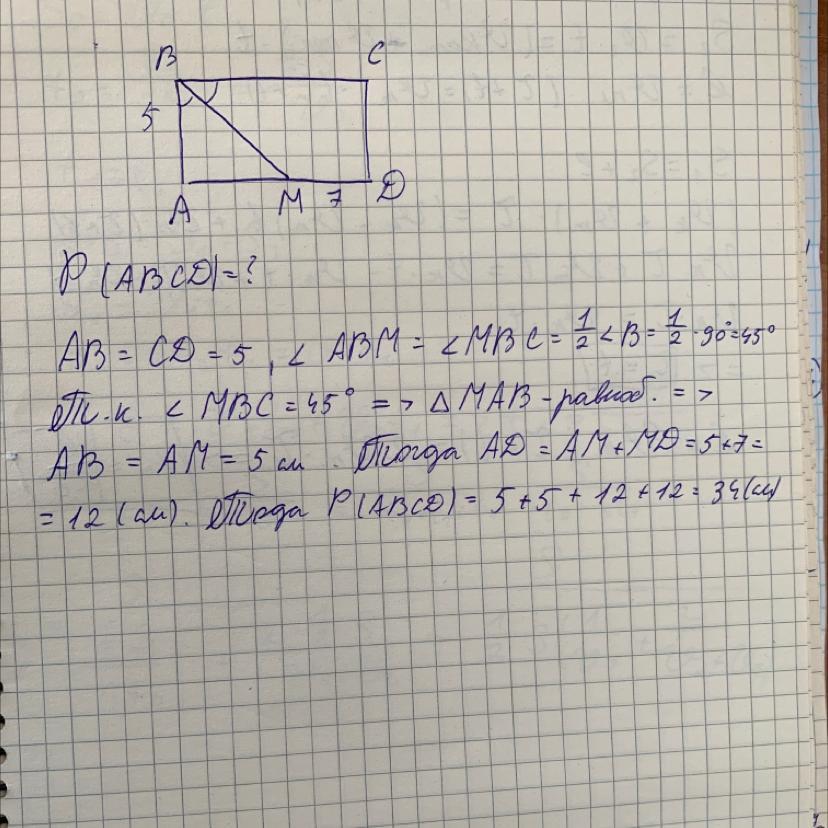 B C
5
A M 7 D
P(ABCD)=?
AB = CD = 5, ∠ ABM = ∠MBC = 1/2 ∠B = 1/2 · 90° = 45°
Т.к. ∠ MBC = 45° => △ MAB - равноб. =>
AB = AM = 5 см. Тогда AD = AM + MD = 5+7=
= 12 (см). Тогда P(ABCD) = 5+5+12+12= 34(см)